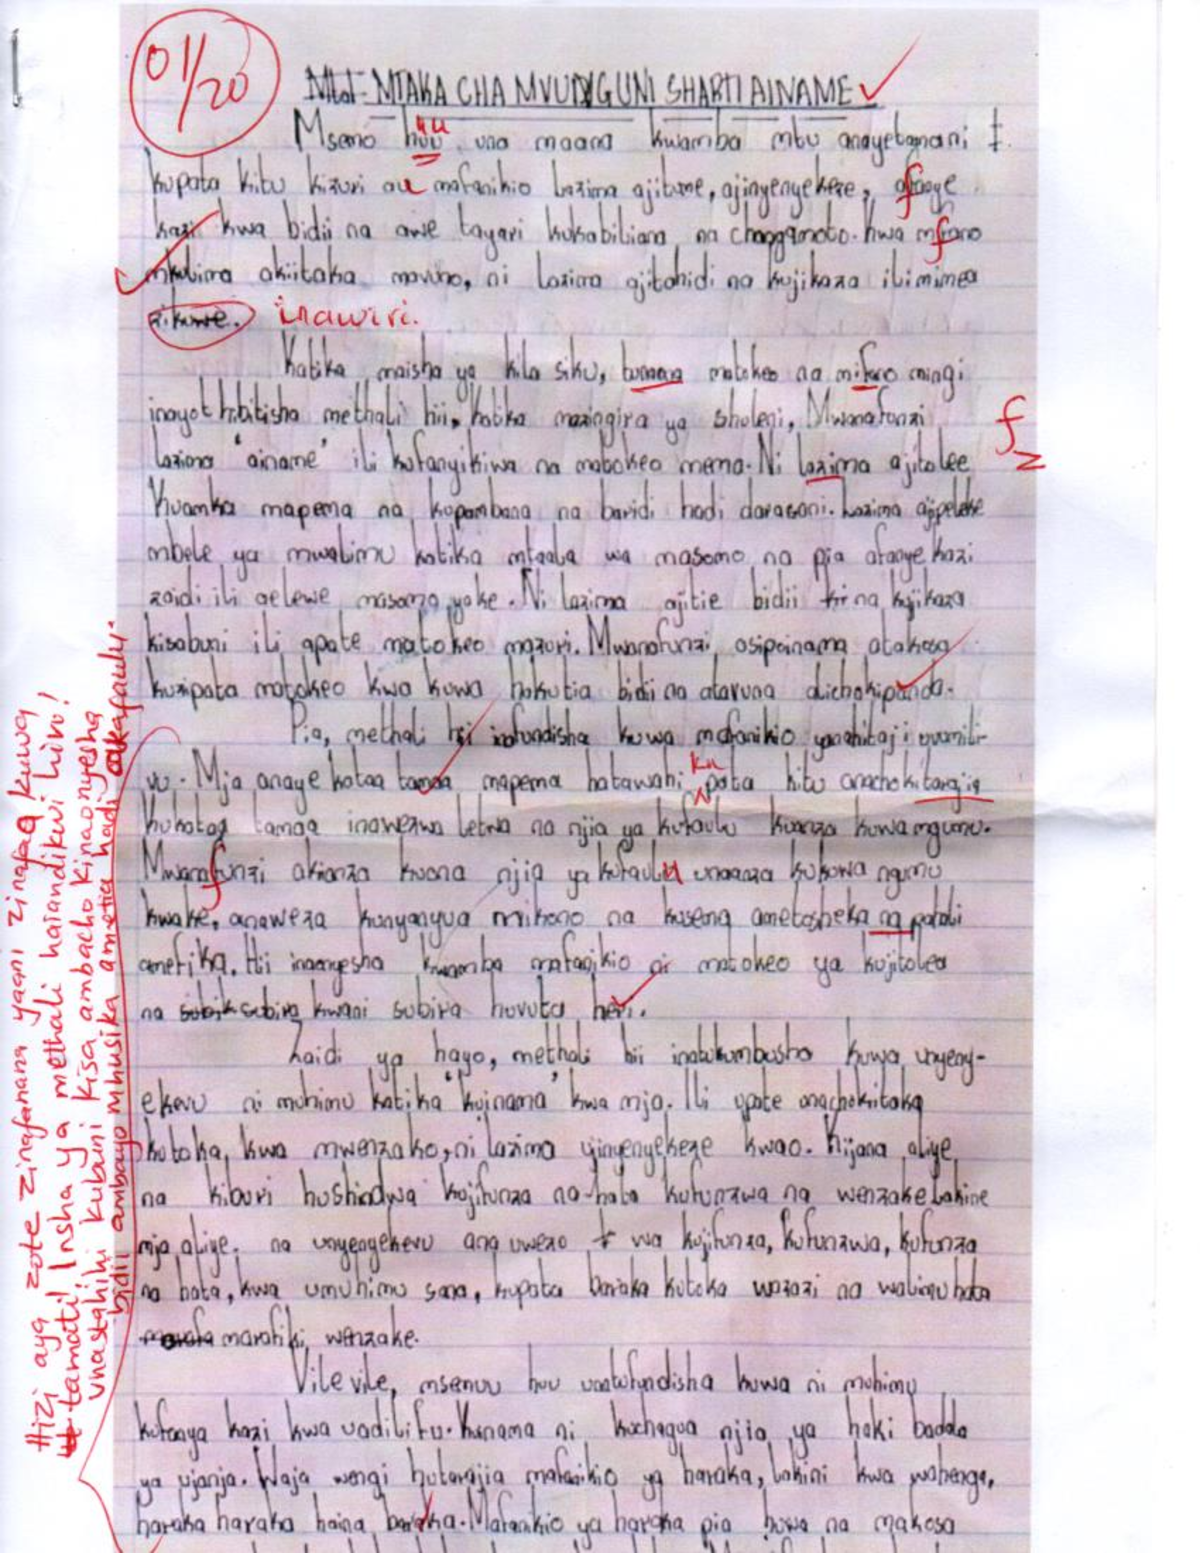 01/20
MTAKA CHA MVUNGUNI SHARTI AINAME
Msemo huu una maana kwamba mtu anayetamani
kupata kitu kizuri au mafanikio lazima ajitume, ajinyenyekeze, afanye
kazi kwa bidii na awe tayari kukabiliana na changamoto. Kwa mfano
mkulima akiitaka mavuno, ni lazima ajitahidi na kujikaza ili mimea
zikuwe. inawiri.
Katika maisha ya kila siku, tunaona matokeo na mifano mingi
inayothibitisha methali hii. Katika mazingira ya shuleni, Mwanafunzi
f
lazima 'ainame' ili kufanyikiwa na matokeo mema. Ni lazima ajitolee
z
Kuamka mapema na kupambana na baridi hadi darasani. Lazima ajipeleke
mbele ya mwalimu katika mtaala wa masomo na pia afanye kazi
zaidi ili aelewe masomo yake. Ni lazima ajitie bidii na kujikaza
kisabuni ili apate matokeo mazuri. Mwanafunzi asipoinama atakosa
kuzipata matokeo kwa kuwa hakutia bidii na atavuna alichokipanda.
Pia, methali hii inafundisha kuwa mafanikio yanahitaji uvumili-
vu. Mja anaye kataa tamaa mapema hatawahi kupata kitu anachokitarajia
Kukataa tamaa inawezwa letwa na njia ya kufaulu kuanza kuwa mgumu.
Mwanafunzi akianza kuona njia ya kufaulu unaanza kukuwa ngumu
kwake, anaweza kunyanyua mikono na kusema ametosheka na
ametika. Hii inaonyesha kwamba mafanikio ni matokeo ya kujitolea
na subira kwani subira huvuta heri.
Zaidi ya hayo, methali hii inatukumbusha kuwa unyeny-
ekevu ni muhimu katika 'kuinama' kwa mja. Ili upate anachokiitaka
kutoka, kwa mwenzako, ni lazima ujinyenyekeze kwao. Kijana aliye
na kiburi hushindwa kujifunza na hata kufunzwa na wenzake lakine
mja aliye na unyenyekevu ana uwezo wa kujifunza, kufunzwa, kufunza
na hata, kwa umuhimu sana, kupata baraka kutoka wazazi na walimu hata
marafiki wenzake.
Vilevile, msemuu huu unatufundisha kuwa ni muhimu
kufanya kazi kwa uadilifu. Kunama ni kuchagua njia ya haki badala
ya ujanja. Waja wengi hutarajia mafanikio ya haraka, lakini kwa wahenga,
haraka haraka haina baraka. Mafanikio ya haraka pia huwa na makosa
Hizi aya zote zinafanana yaani zinafaa kuwa
tamati! Insha ya methali haiandikwi hivi!
unastahiki kubuni kisa ambacho kinaonyesha
bidii ambayo mhusika ametia hadi akafaulu.